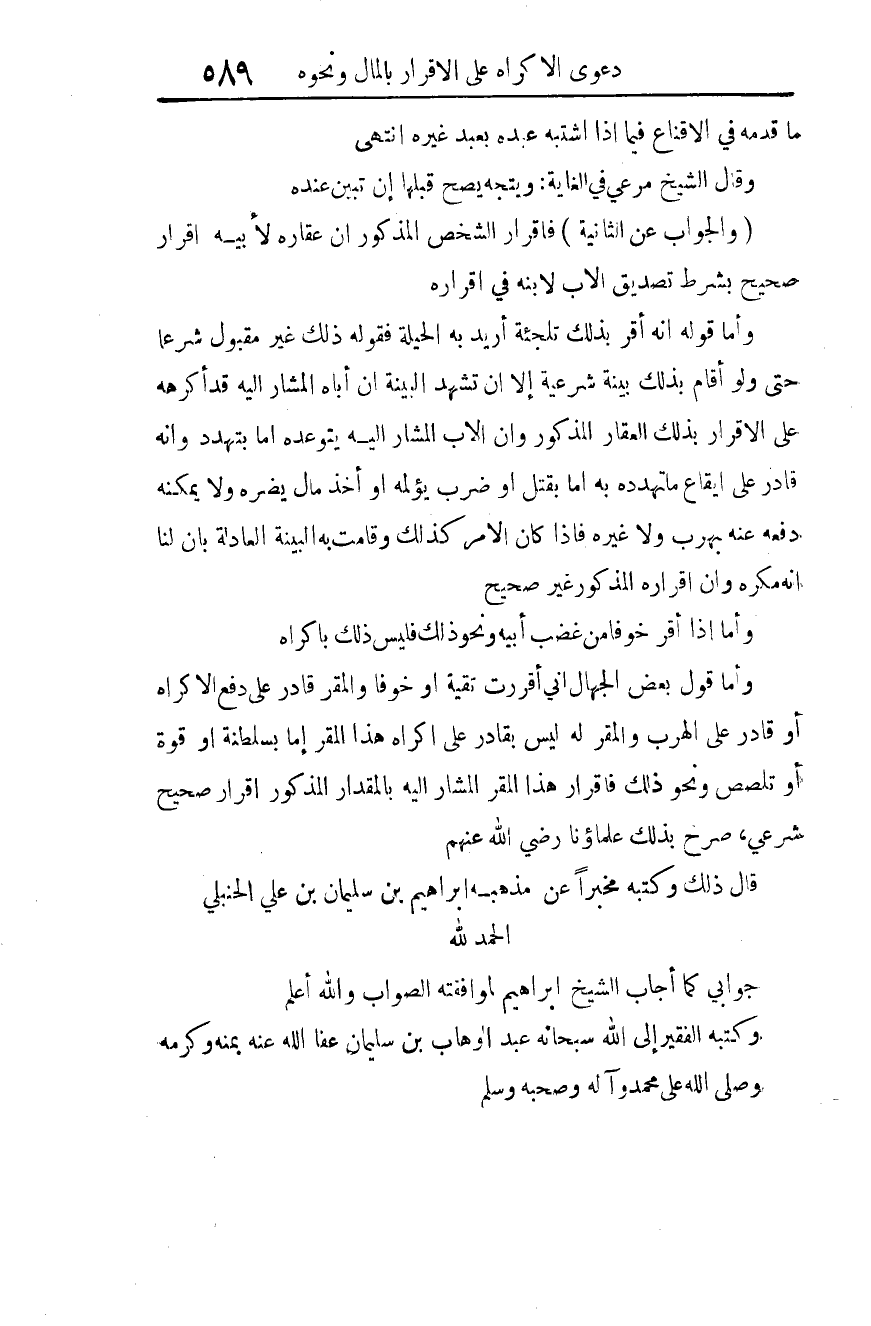 دعوى الاكراه على الاقرار بالمال ونحوه ٥٨٩
ما قدمه في الاقناع فيما اذا اشتبه عبده بعبد غيره انتهى
وقال الشيخ مرعي في الغاية: ويتجه يصح قبلها إن تبين عنده
( والجواب عن الثانية ) فاقرار الشخص المذكور ان عقاره لأبيه اقرار
صحيح بشرط تصديق الاب لابنه في اقراره
وأما قوله انه أقر بذلك تلجئة أريد به الحيلة فقوله ذلك غير مقبول شرعا
حتى ولو أقام بذلك بينة شرعية إلا ان تشهد البينة ان أباه المشار اليه قد أكرهه
على الاقرار بذلك العقار المذكور وان الاب المشار اليه يتوعده اما بتهدد وانه
قادر على ايقاع ماتهدده به اما بقتل او ضرب يؤلمه او أخذ مال يضره ولا يمكنه
دفعه عنه بهرب ولا غيره فاذا كان الامر كذلك وقامت به البينة العادلة بان لنا
انه مكره وان اقراره المذكور غير صحيح
وأما إذا أقر خوفا من غضب أبيه ونحو ذلك فليس ذلك باكراه
وأما قول بعض الجهال اني أقررت تقية او خوفا والمقر قادر على دفع الاكراه
أو قادر على الهرب والمقر له ليس بقادر على اكراه هذا المقر إما بسلطنة او قوة
أو تلصص ونحو ذلك فاقرار هذا المقر المشار اليه بالمقدار المذكور اقرار صحيح
شرعي، صرح بذلك علماؤنا رضي الله عنهم
قال ذلك وكتبه مخبراً عن مذهبه ابراهيم بن سليمان بن علي الحنبلي
الحمد لله
جوابي كما أجاب الشيخ ابراهيم لموافقته الصواب والله أعلم
وكتبه الفقير إلى الله سبحانه عبد الوهاب بن سليمان عفا الله عنه بمنه وكرمه
وصلى الله على محمد وآله وصحبه وسلم